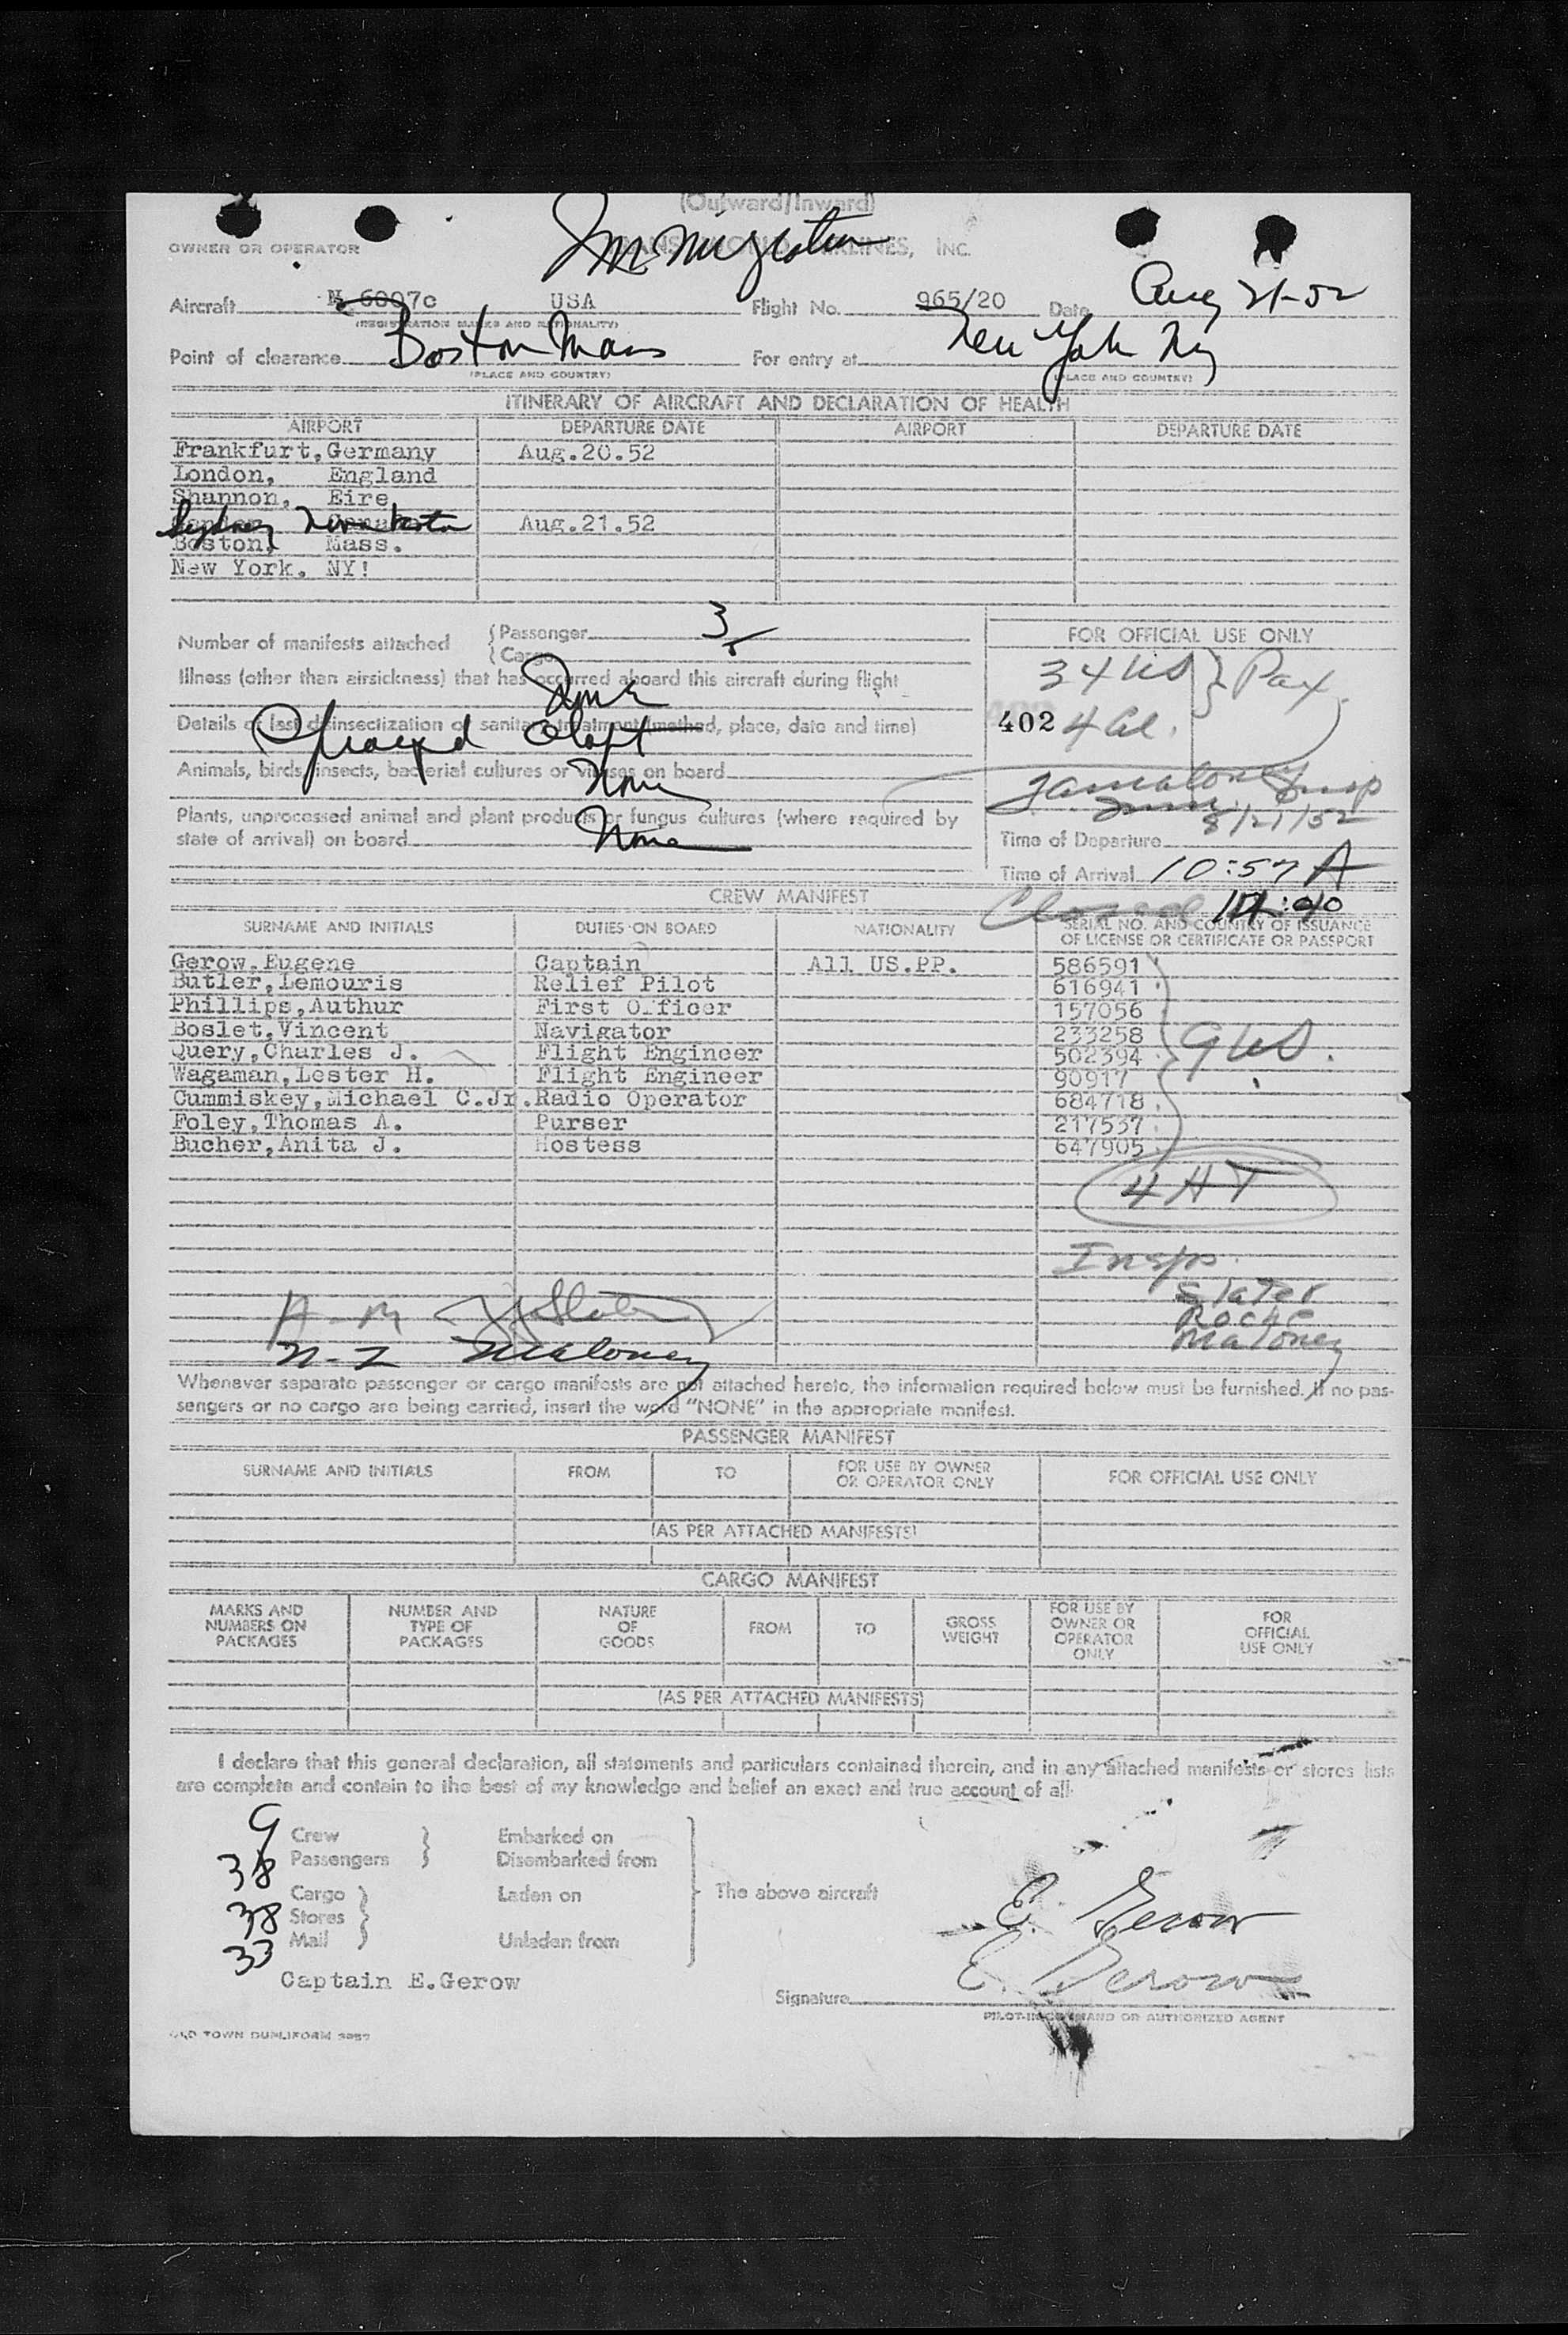 (Outward/Inward)
OWNER OR OPERATOR TRANS WORLD AIRLINES, INC.
Immigration
Aircraft N 6007c USA Flight No. 965/20 Date Aug 21-52
(REGISTRATION MARKS AND NATIONALITY)
Point of clearance Boston Mass For entry at New York NY
(PLACE AND COUNTRY) (PLACE AND COUNTRY)
ITINERARY OF AIRCRAFT AND DECLARATION OF HEALTH
AIRPORT DEPARTURE DATE AIRPORT DEPARTURE DATE
Frankfurt,Germany Aug.20.52
London, England
Shannon, Eire
Sydney Nova Scotia Aug.21.52
Boston, Mass.
New York. NY!
Number of manifests attached {Passenger 3
{Cargo
FOR OFFICIAL USE ONLY
34 US } Pax
402 4 al.
Illness (other than airsickness) that has occurred aboard this aircraft during flight
None
Details of last disinsectization or sanitary treatment (method, place, date and time)
Animals, birds, insects, bacterial cultures or viruses on board
None
Plants, unprocessed animal and plant products or fungus cultures (where required by
state of arrival) on board None
Maloney Insp
8/21/52
Time of Departure
Time of Arrival 10:57 A
Closed
CREW MANIFEST
SURNAME AND INITIALS DUTIES ON BOARD NATIONALITY SERIAL NO. AND COUNTRY OF ISSUANCE
OF LICENSE OR CERTIFICATE OR PASSPORT
Gerow,Eugene Captain All US.PP. 586591
Butler,Lemouris Relief Pilot 616941
Phillips,Authur First Officer 157056
Boslet,Vincent Navigator 233258
Query,Charles J. Flight Engineer 502394
Wagaman,Lester H. Flight Engineer 90917
Cummiskey,Michael C.Jr. Radio Operator 684718
Foley,Thomas A. Purser 217537
Bucher,Anita J. Hostess 647905
9 US.
4 AT
Insps.
Slater
Roche
Maloney
A-M Slater
N-Z Maloney
Whenever separate passenger or cargo manifests are not attached hereto, the information required below must be furnished. If no pas-
sengers or no cargo are being carried, insert the word "NONE" in the appropriate manifest.
PASSENGER MANIFEST
SURNAME AND INITIALS FROM TO FOR USE BY OWNER OR OPERATOR ONLY FOR OFFICIAL USE ONLY
(AS PER ATTACHED MANIFESTS)
CARGO MANIFEST
MARKS AND NUMBERS ON PACKAGES NUMBER AND TYPE OF PACKAGES NATURE OF GOODS FROM TO GROSS WEIGHT FOR USE BY OWNER OR OPERATOR ONLY FOR OFFICIAL USE ONLY
(AS PER ATTACHED MANIFESTS)
I declare that this general declaration, all statements and particulars contained therein, and in any attached manifests or stores lists
are complete and contain to the best of my knowledge and belief an exact and true account of all
9 Crew } Embarked on
38 Passengers } Disembarked from
Cargo } Laden on The above aircraft
38 Stores }
33 Mail } Unladen from
E. Gerow
Captain E.Gerow
E. Gerow
Signature
PILOT-IN-COMMAND OR AUTHORIZED AGENT
OLD TOWN DUPLIFORM 3057